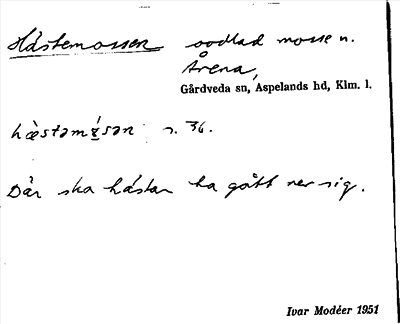 Hästemossen oodlad mosse n.
Årena,
Gårdveda sn, Aspelands hd, Klm. l.
s. 36.
Där ska hästar ha gått ner sig.
Ivar Modéer 1951